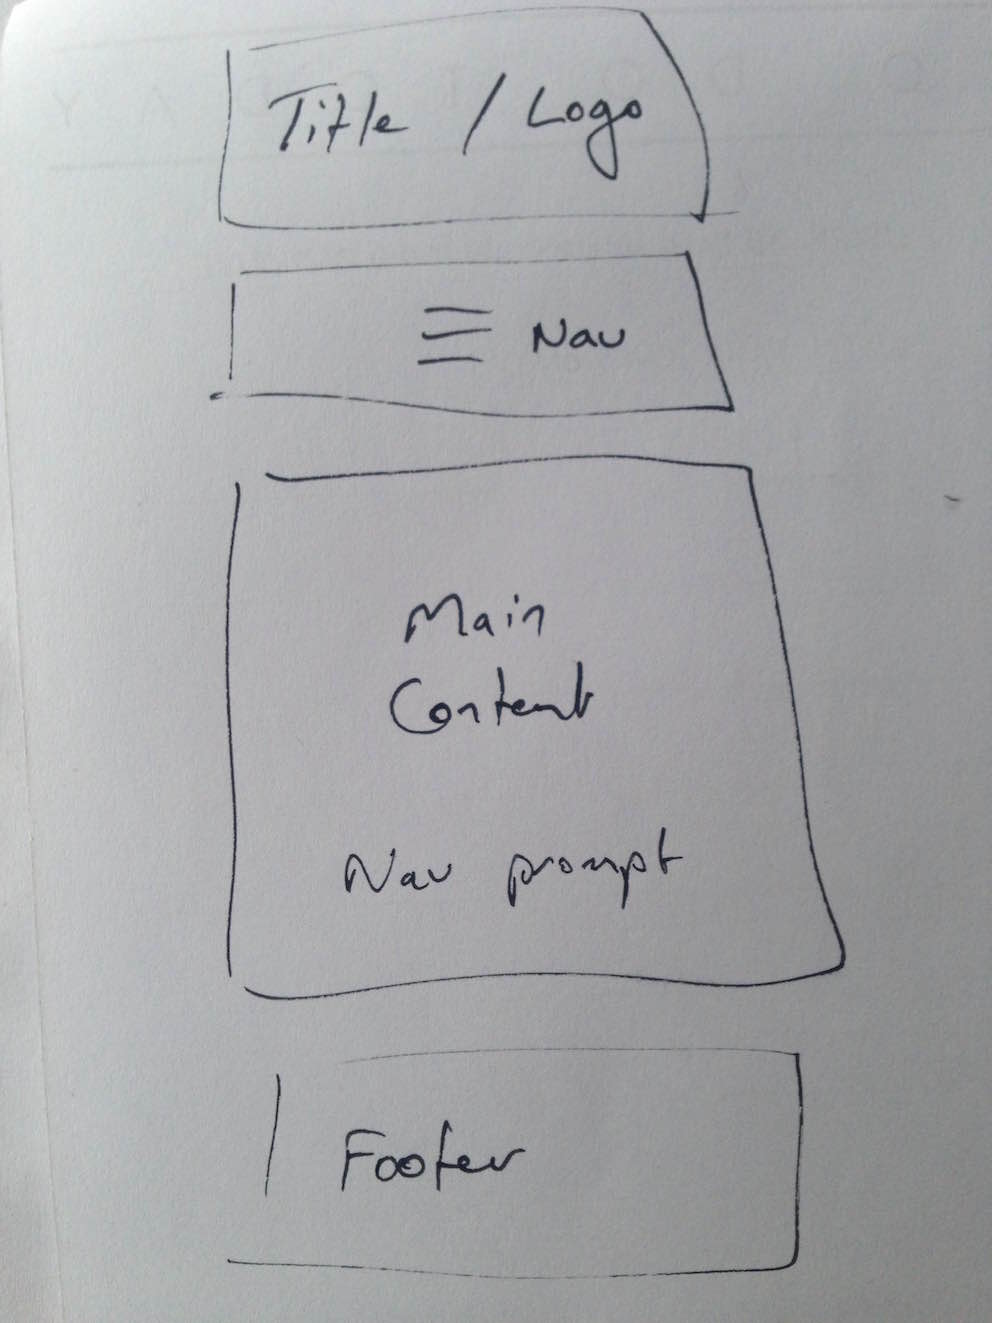 Title / Logo
Nav
Main
Content
Nav prompt
Footer